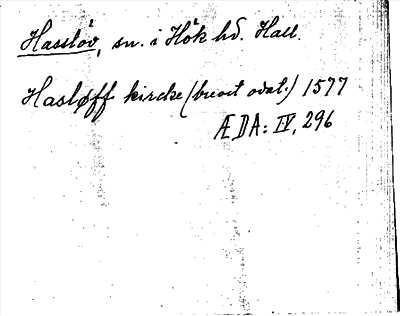 Hasslöv, sn. i Höks hd. Hall.
Hasløff kircke (brevet odat.) 1577
ÆDA: IV, 296